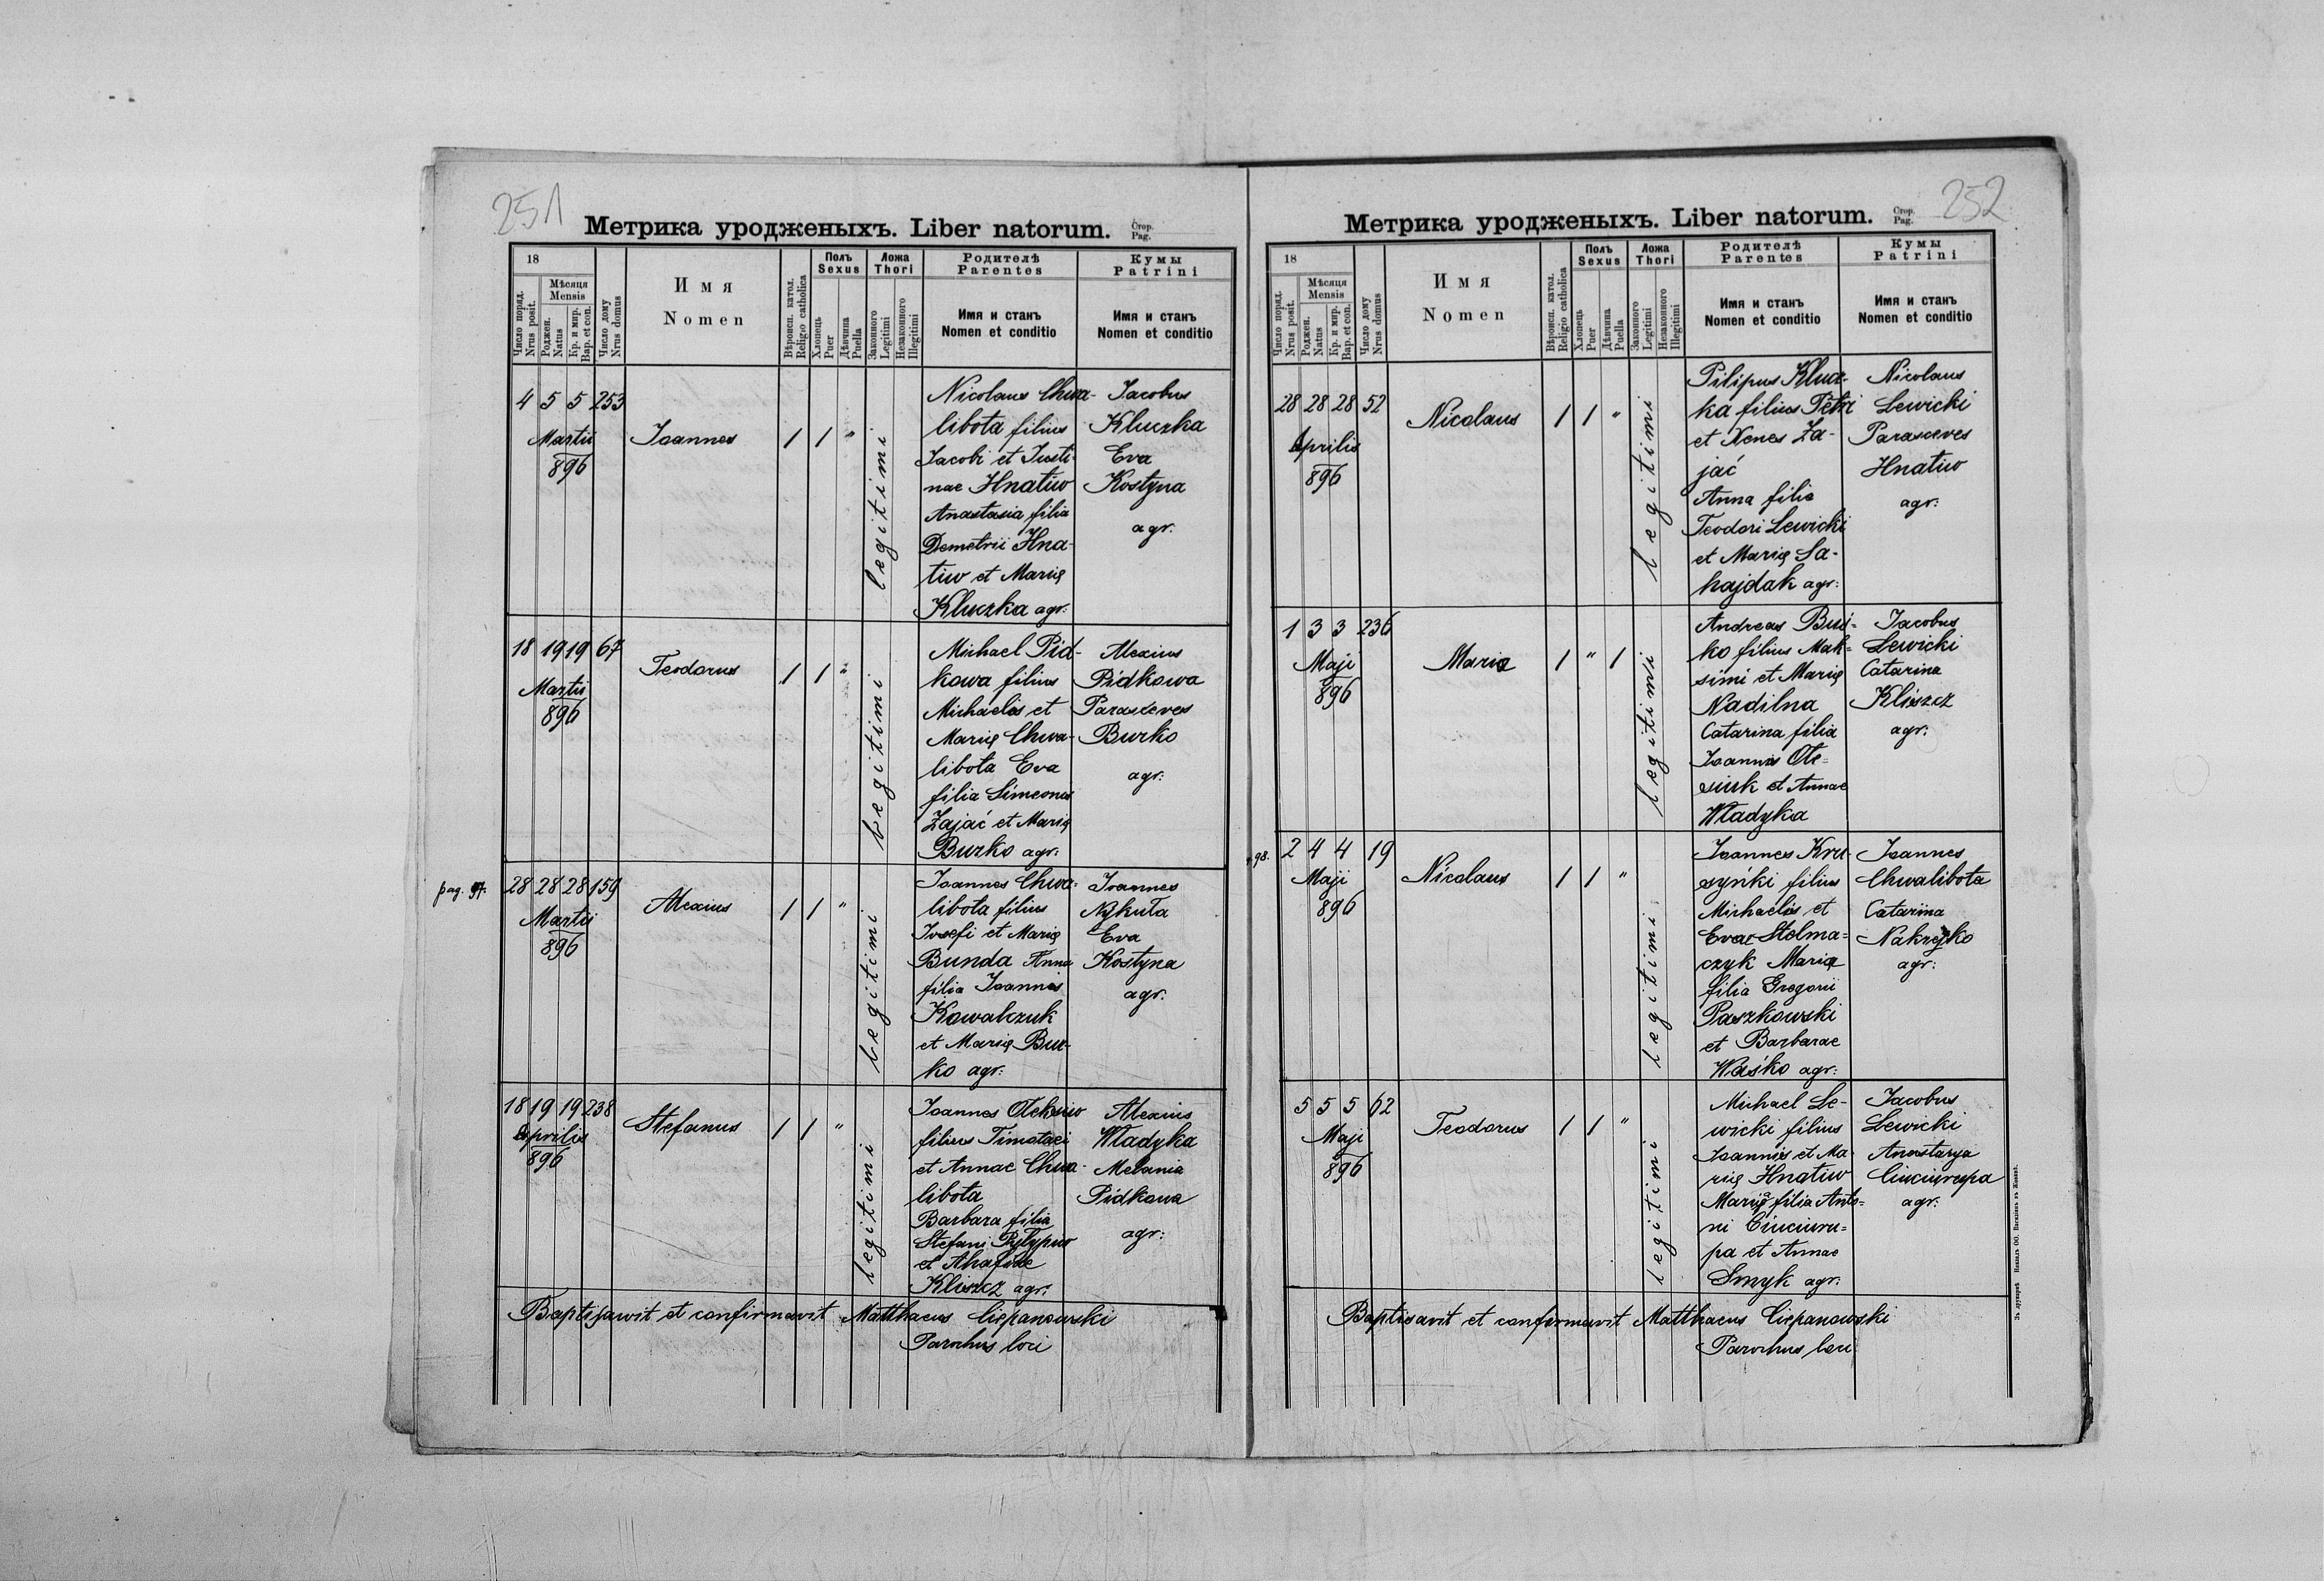 251
Метрика уродженыхъ. Liber natorum.
Стор.
Pag.
18
Число поряд.
Nrus posit.
Мѣсяця
Mensis
Рожден.
Natus
Кр. и мир.
Bap. et con.
Число дому
Nrus domus
Имя
Nomen
Вѣроисп. катол.
Religio catholica
Полъ
Sexus
Хлопець
Puer
Дѣвчина
Puella
Ложа
Thori
Законного
Legitimi
Незаконного
Illegitimi
Родителѣ
Parentes
Имя и станъ
Nomen et conditio
Кумы
Patrini
Имя и станъ
Nomen et conditio
4 5 5 253
Martii
896
Ioannes
1 1 "
legitimi
Nicolaus Chwa-
libota filius
Jacobi et Justi-
nae Hnatiw
Anastasia filia
Demetrii Hna-
tiw et Marię
Kluczka agr:
Jacobus
Kluczka
Eva
Kostyna
agr:
18 19 19 67
Martii
896
Teodorus
1 1 "
legitimi
Michael Pid-
kowa filius
Michaelis et
Marię Chwa-
libota Eva
filia Simeonis
Zajać et Marię
Burko agr:
Alexius
Pidkowa
Parasceves
Burko
agr:
pag. 97.
28 28 28 159
Martii
896
Alexius
1 1 "
legitimi
Ioannes Chwa-
libota filius
Josefi et Marię
Bunda Anna
filia Ioannis
Kowalczuk
et Marię Bur-
ko agr:
Ioannes
Nykuta
Eva
Kostyna
agr:
18 19 19 238
Aprilis
896
Stefanus
1 1 "
legitimi
Ioannes Oleksiw
filius Timotaei
et Annae Chwa-
libota
Barbara filia
Stefani Pylypiw
et Ahafiae
Kliszcz agr:
Alexius
Władyka
Melania
Pidkowa
agr:
Baptisawit et confirmavit Matthaeus Ciepanowski
Parochus loci
252
Метрика уродженыхъ. Liber natorum.
Стор.
Pag.
18
Число поряд.
Nrus posit.
Мѣсяця
Mensis
Рожден.
Natus
Кр. и мир.
Bap. et con.
Число дому
Nrus domus
Имя
Nomen
Вѣроисп. катол.
Religio catholica
Полъ
Sexus
Хлопець
Puer
Дѣвчина
Puella
Ложа
Thori
Законного
Legitimi
Незаконного
Illegitimi
Родителѣ
Parentes
Имя и станъ
Nomen et conditio
Кумы
Patrini
Имя и станъ
Nomen et conditio
28 28 28 52
Aprilis
896
Nicolaus
1 1 "
legitimi
Pilipus Klucz-
ka filius Petri
et Xenes Za-
jać
Anna filia
Teodori Lewicki
et Marię Sa-
hajdak agr:
Nicolaus
Lewicki
Parasceves
Hnatiw
agr:
1 3 3 236
Maji
896
Maria
1 " 1
legitimi
Andreas Buś-
ko filius Mak-
simi et Marię
Nadilna
Catarina filia
Ioannis Ole-
siuk et Annae
Władyka
Jacobus
Lewicki
Catarina
Kliszcz
agr:
98.
2 4 4 19
Maji
896
Nicolaus
1 1 "
legitimi
Ioannes Kru-
syńki filius
Michaelis et
Evae Stolma-
czyk Maria
filia Gregorii
Paszkowski
et Barbarae
Waśko agr:
Ioannes
Chwalibota
Catarina
Nakryjko
agr:
5 5 5 62
Maji
896
Teodorus
1 1 "
legitimi
Michael Le-
wicki filius
Ioannis et Ma-
rię Hnatiw
Maria filia Anto-
ni Ciuciuru-
pa et Annae
Smyk agr:
Jacobus
Lewicki
Anastazya
Ciuciurupa
agr:
Baptisavit et confirmavit Matthaeus Ciepanowski
Parochus loci